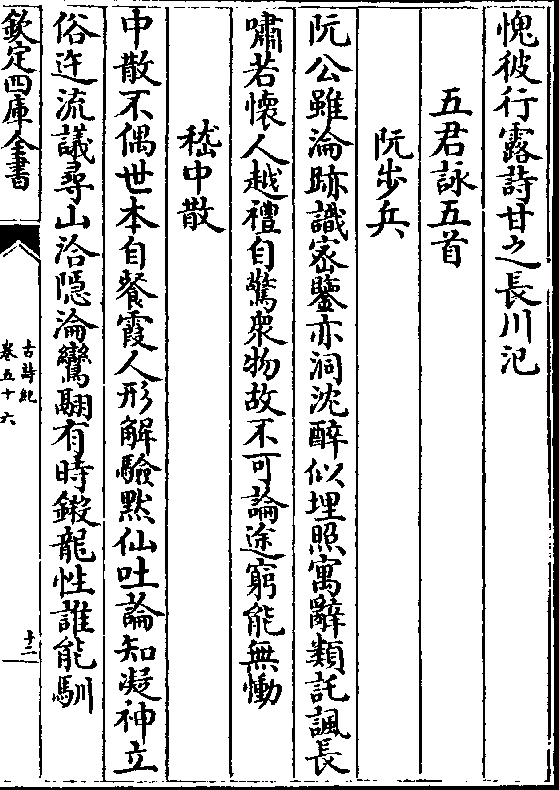 愧彼行露詩甘之長川汜
五君詠五首
阮步兵
阮公雖淪跡識宻鑒亦洞沈醉似埋照寓辭類託諷長
嘯若懷人越禮自驚衆物故不可論途窮能無慟
嵇中散
中散不偶世本自餐霞人形解驗黙仙吐論知凝神立
俗迕流議尋山洽隠淪鸞翮有時鎩龍性誰能馴
欽定四庫全書
古詩紀
卷五十六
十二